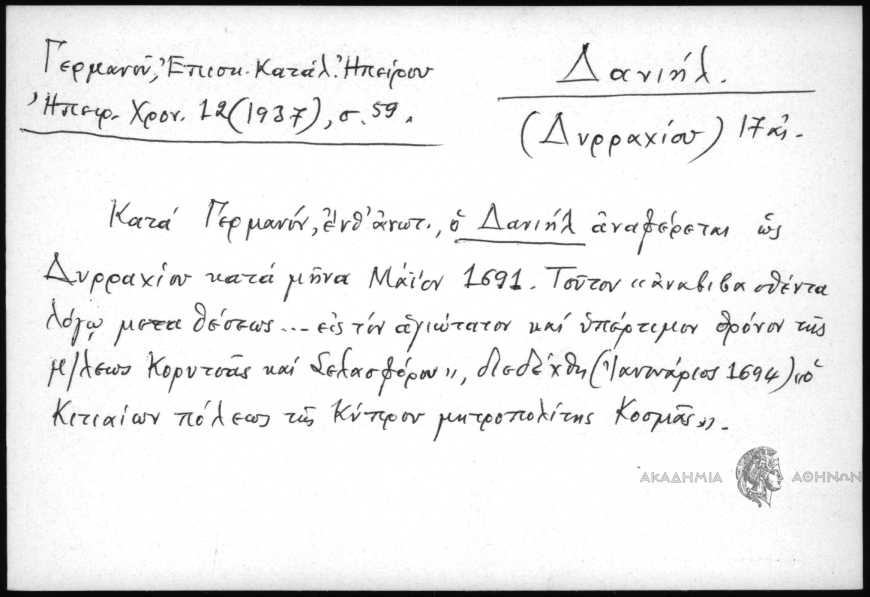 Γερμανοῦ, Ἐπισκ. Κατάλ. Ἠπείρου
Ἠπειρ. Χρον. 12 (1937), σ. 59.
Δανιήλ.
(Δυρραχίου) 17 αἰ.
Κατά Γερμανόν, ἔνθ' ἀνωτ., ὁ Δανιήλ ἀναφέρεται ὡς
Δυρραχίου κατά μῆνα Μάϊον 1691. Τοῦτον «ἀναβιβασθέντα
λόγῳ μεταθέσεως... εἰς τόν ἁγιώτατον καί ὑπέρτιμον θρόνον τῆς
μ/λεως Κορυτσᾶς καί Σελασφόρου», διεδέχθη (Ἰανουάριος 1694) «ὁ
Κιτιαίων πόλεως τῆς Κύπρου μητροπολίτης Κοσμᾶς».
ΑΚΑΔΗΜΙΑ ΑΘΗΝΩΝ